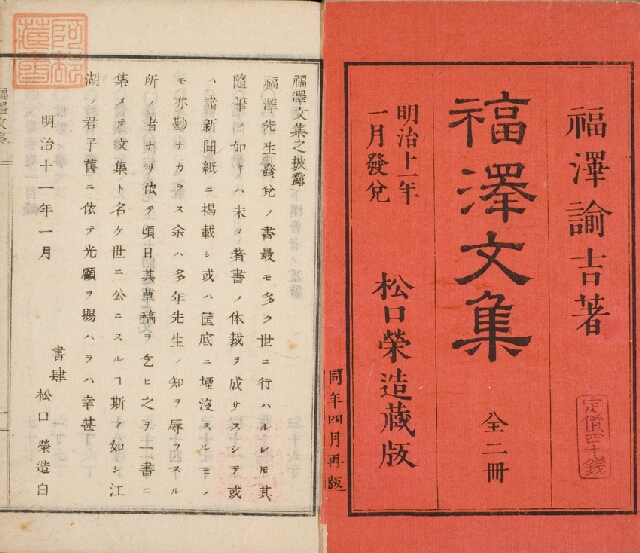 福澤諭吉著
福澤文集
全二冊
明治十一年
一月發兌
松口榮造藏版
定價四十錢
同年四月再版
福澤文集之披露
福澤先生發兌ノ書最モ多ク世ニ行ハルレ𪜈其
隨筆ノ如キハ未タ著書ノ体裁ヲ成サスシテ或
ハ諸新聞紙ニ掲載シ或ハ筐底ニ堙沒スルモノ
モ亦尠ナカラス余ハ多年先生ノ知ヲ辱フスル
所ノ者ナリ依テ頃日其草稿ヲ乞ヒ之ヲ二書ニ
集メ文集ト名ケ世ニ公ニスルヿ斯ノ如シ江
湖ノ君子舊ニ依テ光顧ヲ賜ハヲハ幸甚
明治十一年一月
書肆 松口榮造白
福澤文集